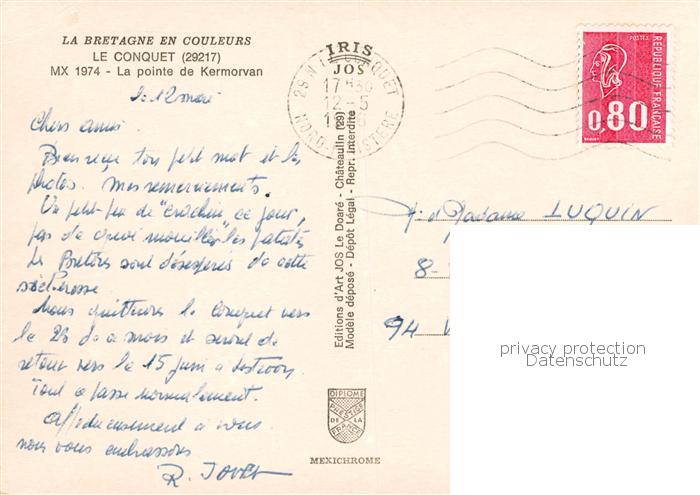 LA BRETAGNE EN COULEURS
LE CONQUET (29217)
MX 1974 - La pointe de Kermorvan
le 12 mai
Chers amis.
Bien reçu ton petit mot et les
photos. Mes remerciements.
Un petit peu de "crachin, ce jour,
pas de quoi mouiller les patates
Les Bretons sont désespérés de cette
sécheresse
Nous quitterons le Conquet vers
le 28 de ce mois et serons de
retour vers le 15 juin à
Tout se passe normalement.
Affectueusement à vous.
nous vous embrassons
R. JOVET
IRIS
JOS
29 N LE CONQUET
17H30
12-5
NORD FINISTERE
Editions d'Art JOS Le Doaré - Châteaulin (29)
Modèle déposé - Dépôt Légal - Repr. Interdite
DIPLOME
PRESTIGE
DE LA
FRANCE
MEXICHROME
POSTES
REPUBLIQUE FRANÇAISE
0,80
Madame LUQUIN
8-
94 V
privacy protection
Datenschutz